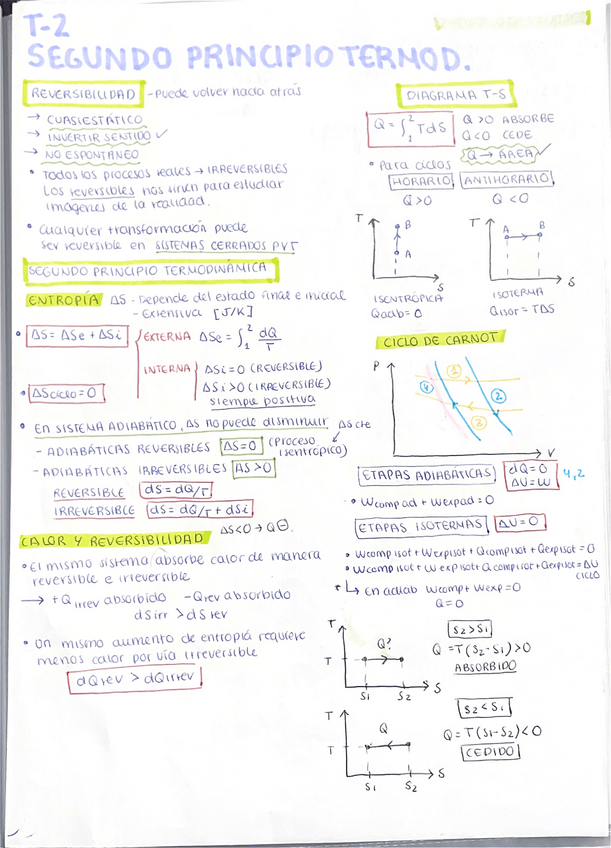 T-2
SEGUNDO PRINCIPIO TERMOD.
REVERSIBILIDAD - Puede volver hacia atrás
→ CUASIESTÁTICO
→ INVERTIR SENTIDO ✓
→ NO ESPONTÁNEO
• Todos los procesos reales → IRREVERSIBLES
Los reversibles nos sirven para estudiar
imágenes de la realidad.
• Cualquier transformación puede
ser reversible en SISTEMAS CERRADOS PVT
SEGUNDO PRINCIPIO TERMODINÁMICA
ENTROPÍA ΔS - Depende del estado final e inicial
- Extensiva [J/K]
• ΔS = ΔSe + ΔSi
EXTERNA ΔSe = ∫₁² dQ/T
INTERNA ΔSi = 0 (REVERSIBLE)
ΔSi > 0 (IRREVERSIBLE)
siempre positiva
• ΔSciclo = 0
• EN SISTEMA ADIABÁTICO, ΔS no puede disminuir ΔS cte
- ADIABÁTICAS REVERSIBLES ΔS = 0 (Proceso isentrópico)
- ADIABÁTICAS IRREVERSIBLES ΔS > 0
REVERSIBLE dS = dQ/T
IRREVERSIBLE dS = dQ/T + dSi
ΔS < 0 → Q⊖
CALOR Y REVERSIBILIDAD
• El mismo sistema absorbe calor de manera
reversible e irreversible
→ +Q irrev absorbido - Qrev absorbido
dS irr > dS rev
• Un mismo aumento de entropía requiere
menos calor por vía irreversible
dQrev > dQirrev
DIAGRAMA T-S
Q = ∫₁² TdS
Q > 0 ABSORBE
Q < 0 CEDE
Q → ÁREA ✓
• Para ciclos
HORARIO ANTIHORARIO
Q > 0 Q < 0
T B A S
T A B S
ISENTRÓPICA
Qadb = 0
ISOTERMA
Qisot = TΔS
CICLO DE CARNOT
P 1 2 3 4 V
ETAPAS ADIABÁTICAS dQ = 0
ΔU = W
4,2
• Wcompad + Wexpad = 0
ETAPAS ISOTERMAS ΔU = 0
• Wcompisot + Wexpisot + Qcompisot + Qexpisot = 0
• Wcompisot + Wexpisot + Qcompisot + Qexpisot = ΔU
CICLO
↳ En adiab Wcomp + Wexp = 0
Q = 0
T Q? T S1 S2 S
S2 > S1
Q = T(S2-S1) > 0
ABSORBIDO
T Q T S1 S2 S
S2 < S1
Q = T(S1-S2) < 0
CEDIDO